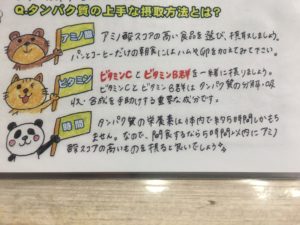 Q.タンパク質の上手な摂取方法とは?
アミノ酸
アミノ酸スコアの高い食品を選び、摂取しましょう。
パンとコーヒーだけの朝食にはハムや卵を加えてみて下さい。
ビタミン
ビタミンCとビタミンB群を一緒に摂りましょう。
ビタミンCとビタミンB群はタンパク質の分解・吸
収・合成を手助けする重要な成分です。
時間
タンパク質の栄養素は体内で約5時間しかもち
ません。なので、間食するなら5時間以内にアミノ
酸スコアの高いものを摂ると良いでしょう。